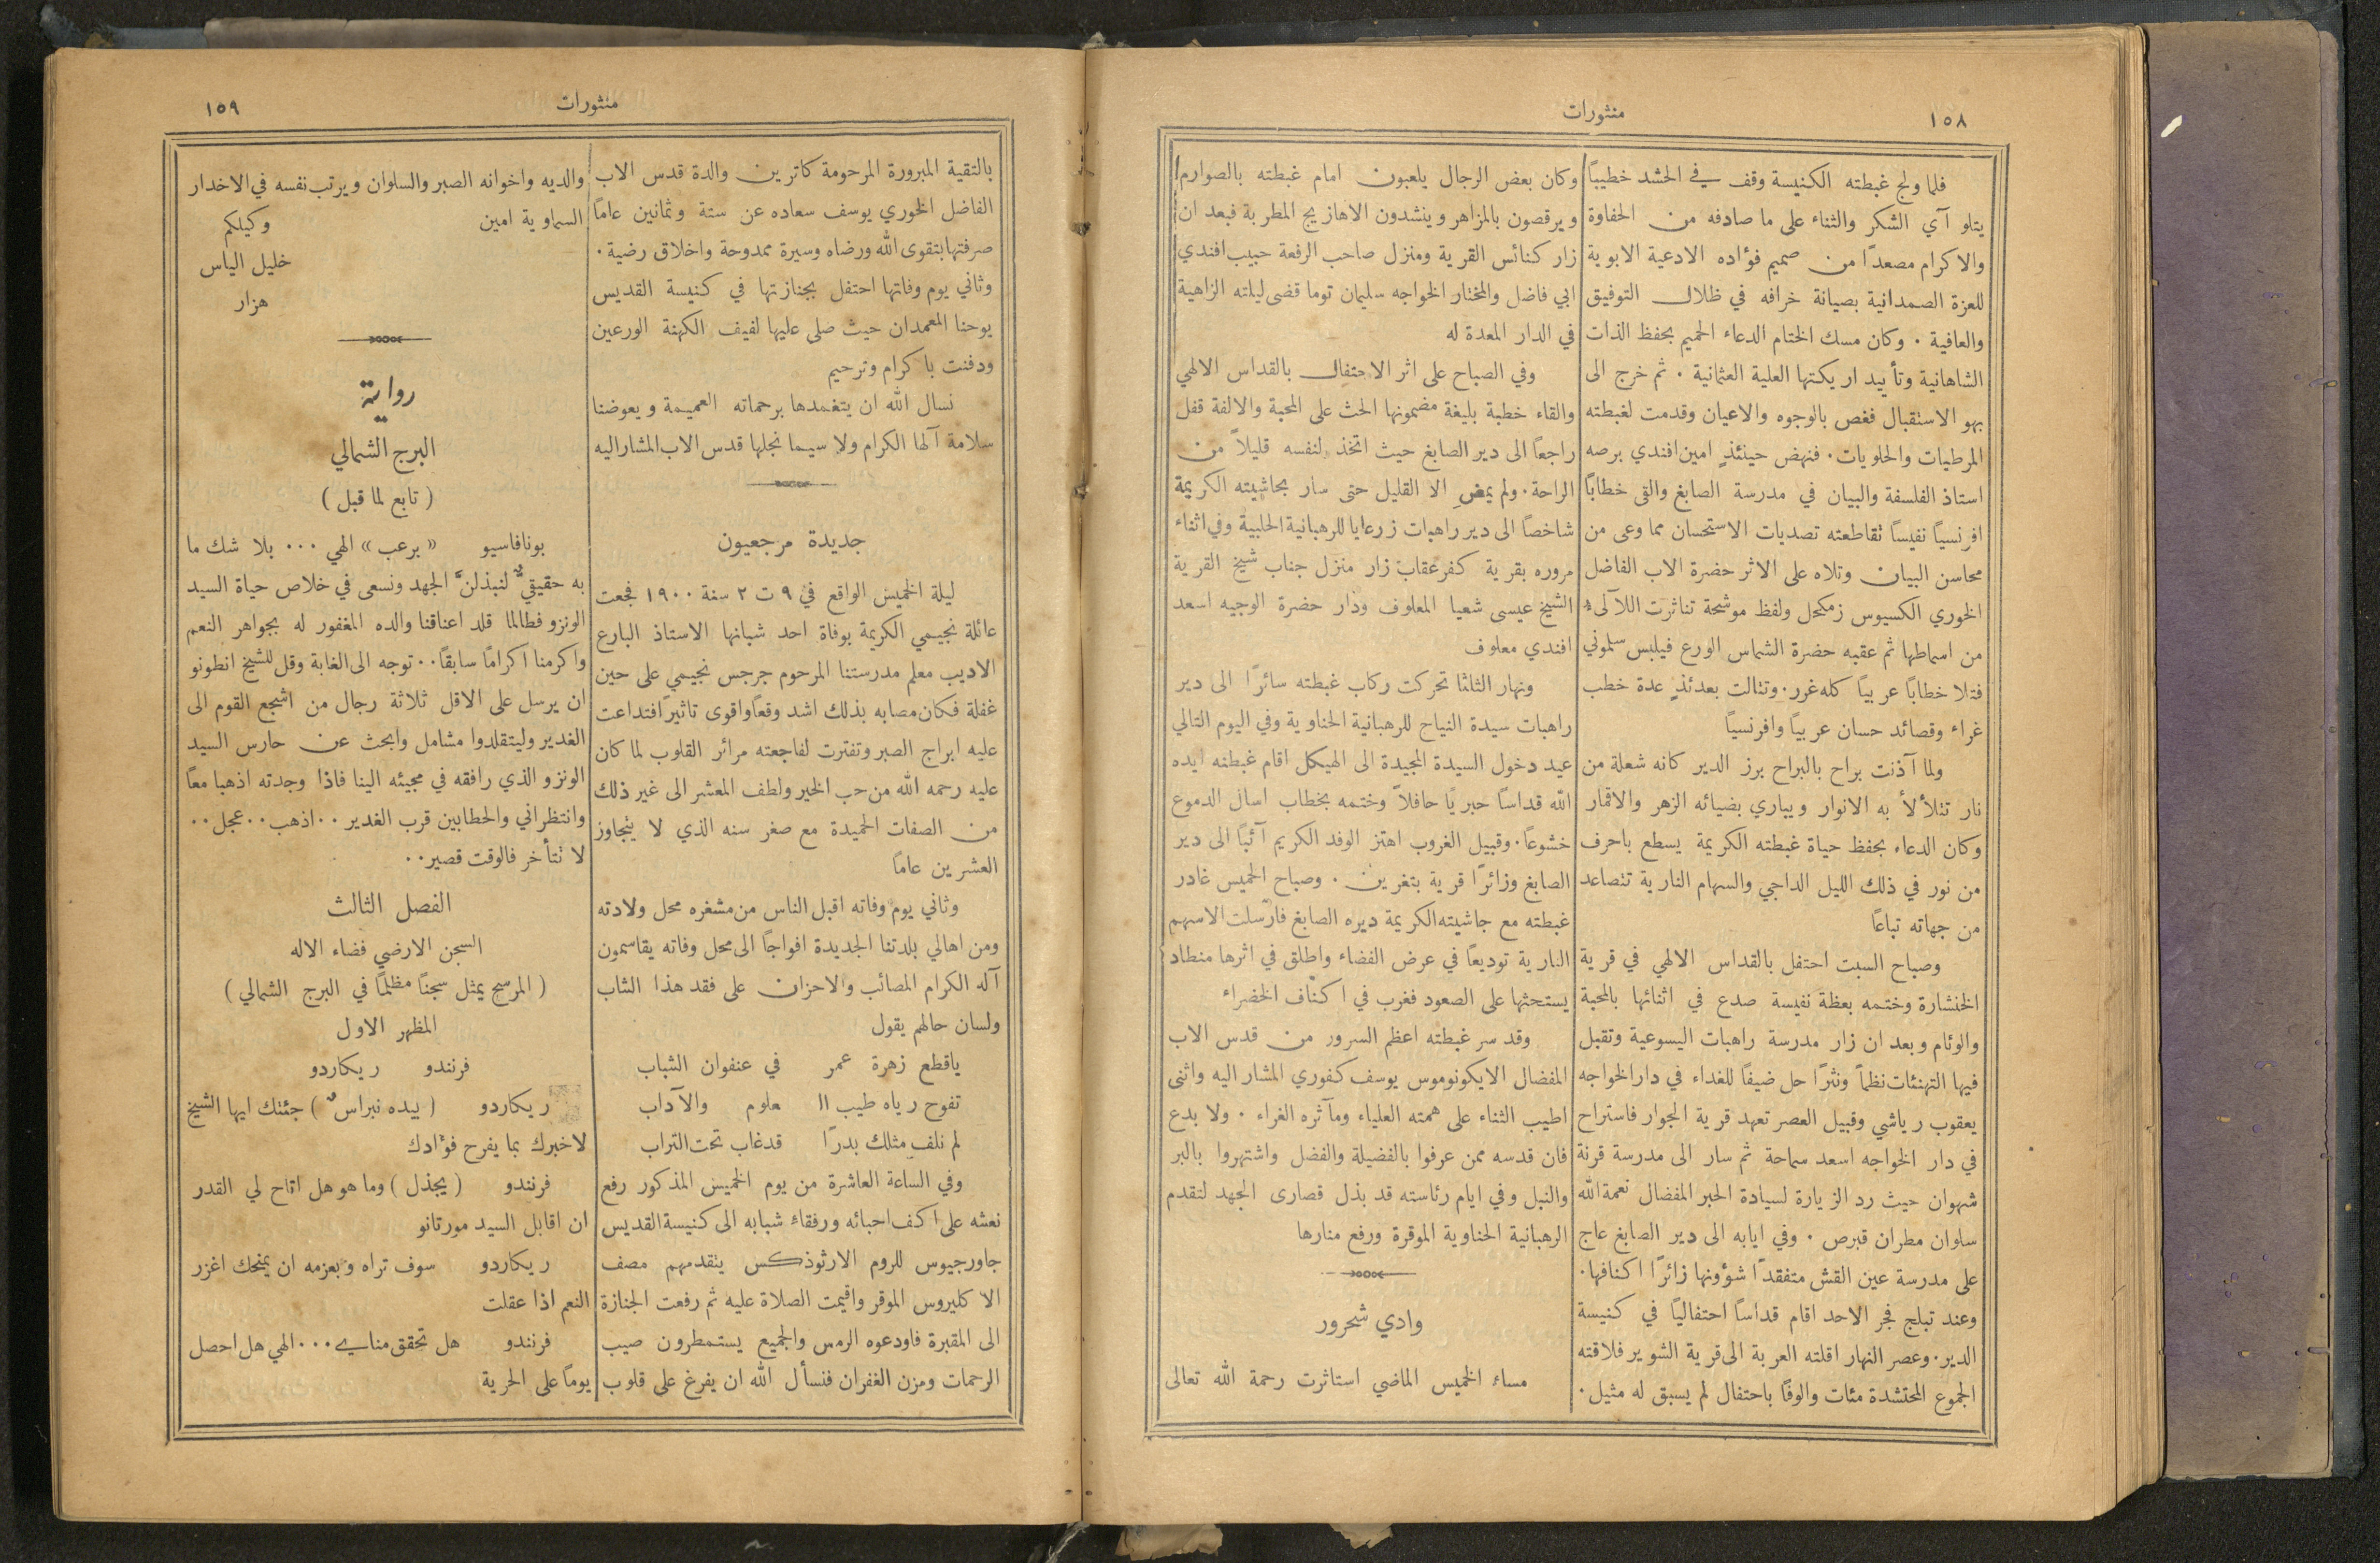 ١٥٨
منثورات
فلما ولج غبطته الكنيسة وقف في الحشد خطيباً
يتلو آي الشكر والثناء على ما صادفه من الحفاوة
والاكرام مصعداً من صميم فؤاده الادعية الابوية
للعزة الصمدانية بصيانة خرافه في ظلال التوفيق
والعافية . وكان مسك الختام الدعاء الحميم بحفظ الذات
الشاهانية وتأييد اريكتها العلية العثمانية . ثم خرج الى
بهو الاستقبال فغص بالوجوه والاعيان وقدمت لغبطته
المرطبات والحلويات . فنهض حينئذٍ امين افندي برصه
استاذ الفلسفة والبيان في مدرسة الصابغ والقى خطاباً
افرنسياً نفيساً تقاطعته تصديات الاستحسان مما وعى من
محاسن البيان وتلاه على الاثر حضرة الاب الفاضل
الخوري الكسيوس زمكحل ولفظ موشحة تناثرت اللآلىء
من اسماطها ثم عقبه حضرة الشماس الورع فيلبس سلموني
فتلا خطاباً عربياً كله غرر . وتنالت بعدئذٍ عدة خطب
غراء وقصائد حسان عربياً وافرنسياً
ولما آذنت براح بالبراح برز الدير كانه شعلة من
نار تتلألأ به الانوار ويباري بضيائه الزهر والاقمار
وكان الدعاء بحفظ حياة غبطته الكريمة يسطع باحرف
من نور في ذلك الليل الداجي والسهام النارية تتصاعد
من جهاته تباعاً
وصباح السبت احتفل بالقداس الالهي في قرية
الخنشارة وختمه بعظة نفيسة صدع في اثنائها بالمحبة
والوئام وبعد ان زار مدرسة راهبات اليسوعية وتقبل
فيها التهنئات نظماً ونثراً حل ضيفاً للغداء في دار الخواجه
يعقوب رياشي وقبيل العصر تعهد قرية الجوار فاستراح
في دار الخواجه اسعد سماحة ثم سار الى مدرسة قرنة
شهوان حيث رد الزيارة لسيادة الحبر المفضال نعمة الله
سلوان مطران قبرص . وفي ايابه الى دير الصابغ عاج
على مدرسة عين القش متفقداً شؤونها زائراً اكنافها .
وعند تبلج فجر الاحد اقام قداساً احتفالياً في كنيسة
الدير . وعصر النهار اقلته العربة الى قرية الشوير فلاقته
الجموع المحتشدة مئات والوفاً باحتفال لم يسبق له مثيل .
وكان بعض الرجال يلعبون امام غبطته بالصوارم
ويرقصون بالمزاهر وينشدون الاهازيج المطربة فبعد ان
زار كنائس القرية ومنزل صاحب الرفعة حبيب افندي
ابي فاضل والمختار الخواجه سليمان توما قضى ليلته الزاهية
في الدار المعدة له
وفي الصباح على اثر الاحتفال بالقداس الالهي
والقاء خطبة بليغة مضمونها الحث على المحبة والالفة قفل
راجعاً الى دير الصابغ حيث اتخذ لنفسه قليلاً من
الراحة . ولم يمضِ الا القليل حتى سار بحاشيته الكريمة
شاخصاً الى دير راهبات زرعايا للرهبانية الحلبية وفي اثناء
مروره بقرية كفرعقاب زار منزل جناب شيخ القرية
الشيخ عيسى شعيا المعلوف ودار حضرة الوجيه اسعد
افندي معلوف
ونهار الثلثا تحركت ركاب غبطته سائراً الى دير
راهبات سيدة النياح للرهبانية الحناوية وفي اليوم التالي
عيد دخول السيدة المجيدة الى الهيكل اقام غبطته ايده
الله قداساً حبرياً حافلاً وختمه بخطاب اسال الدموع
خشوعاً . وقبيل الغروب اهتز الوفد الكريم آئباً الى دير
الصابغ وزائراً قرية بتغرين . وصباح الخميس غادر
غبطته مع حاشيته الكريمة ديره الصابغ فارسلت الاسهم
النارية توديعاً في عرض الفضاء واطلق في اثرها منطاد
يستحثها على الصعود فغرب في اكناف الخضراء
وقد سر غبطته اعظم السرور من قدس الاب
المفضال الايكونوموس يوسف كفوري المشار اليه واثنى
اطيب الثناء على همته العلياء ومآثره الغراء . ولا بدع
فان قدسه ممن عرفوا بالفضيلة والفضل واشتهروا بالبر
والنبل وفي ايام رئاسته قد بذل قصارى الجهد لتقدم
الرهبانية الحناوية الموقرة ورفع منارها
وادي شحرور
مساء الخميس الماضي استاثرت رحمة الله تعالى
منثورات
١٥٩
بالتقية المبرورة المرحومة كاترين والدة قدس الاب
الفاضل الخوري يوسف سعاده عن ستة وثمانين عاماً
صرفتها بتقوى الله ورضاه وسيرة ممدوحة واخلاق رضية .
وثاني يوم وفاتها احتفل بجنازتها في كنيسة القديس
يوحنا المعمدان حيث صلى عليها لفيف الكهنة الورعين
ودفنت باكرام وترحيم
نسال الله ان يتغمدها برحماته العميمة ويعوضنا
سلامة آلها الكرام ولا سيما نجلها قدس الاب المشار اليه
جديدة مرجعيون
ليلة الخميس الواقع في ٩ ت ٢ سنة ١٩٠٠ فجعت
عائلة نجيمي الكريمة بوفاة احد شبانها الاستاذ البارع
الاديب معلم مدرستنا المرحوم جرجس نجيمي على حين
غفلة فكان مصابه بذلك اشد وقعاً واقوى تاثيراً فتداعت
عليه ابراج الصبر وتفترت لفاجعته مرائر القلوب لما كان
عليه رحمه الله من حب الخير ولطف المعشر الى غير ذلك
من الصفات الحميدة مع صغر سنه الذي لا يتجاوز
العشرين عاماً
وثاني يوم وفاته اقبل الناس من مشغره محل ولادته
ومن اهالي بلدتنا الجديدة افواجاً الى محل وفاته يقاسمون
آله الكرام المصائب والاحزان على فقد هذا الشاب
ولسان حالهم يقول
ياقطع زهرة عمر في عنفوان الشباب
تفوح رياه طيب ال علوم والآداب
لم نلفِ مثلك بدراً قد غاب تحت التراب
وفي الساعة العاشرة من يوم الخميس المذكور رفع
نعشه على اكف احبائه ورفقاء شبابه الى كنيسة القديس
جاورجيوس للروم الارثوذكس يتقدمهم مصف
الاكليروس الموقر واقيمت الصلاة عليه ثم رفعت الجنازة
الى المقبرة فاودعوه الرمس والجميع يستمطرون صيب
الرحمات ومزن الغفران فنسأل الله ان يفرغ على قلوب
والديه واخوانه الصبر والسلوان ويرتب نفسه في الاخدار
السماوية امين وكيلكم
خليل الياس
هزار
رواية
البرج الشمالي
( تابع لما قبل )
بونافاسيو « برعب » الهي ... بلا شك ما
به حقيقيٌّ لنبذلنَّ الجهد ونسعى في خلاص حياة السيد
الونزو فطالما قلد اعناقنا والده المغفور له بجواهر النعم
واكرمنا اكراماً سابقاً .. توجه الى الغابة وقل للشيخ انطونو
ان يرسل على الاقل ثلاثة رجال من اشجع القوم الى
الغدير وليتقلدوا مشامل وابحث عن حارس السيد
الونزو الذي رافقه في مجيئه الينا فاذا وجدته اذهبا معاً
وانتظراني والحطابين قرب الغدير .. اذهب .. عجل ..
لا تتأخر فالوقت قصير ..
الفصل الثالث
السجن الارضي فضاء الاله
( المرسح يمثل سجناً مظلماً في البرج الشمالي )
المظهر الاول
فرنندو ريكاردو
ريكاردو ( بيده نبراس ) جئتك ايها الشيخ
لاخبرك بما يفرح فؤادك
فرنندو ( يجذل ) وما هو هل اتاح لي القدر
ان اقابل السيد مورتانو
ريكاردو سوف تراه وبعزمه ان يمنحك اغزر
النعم اذا عقلت
فرنندو هل تحقق مناي ... الهي هل احصل
يوماً على الحرية